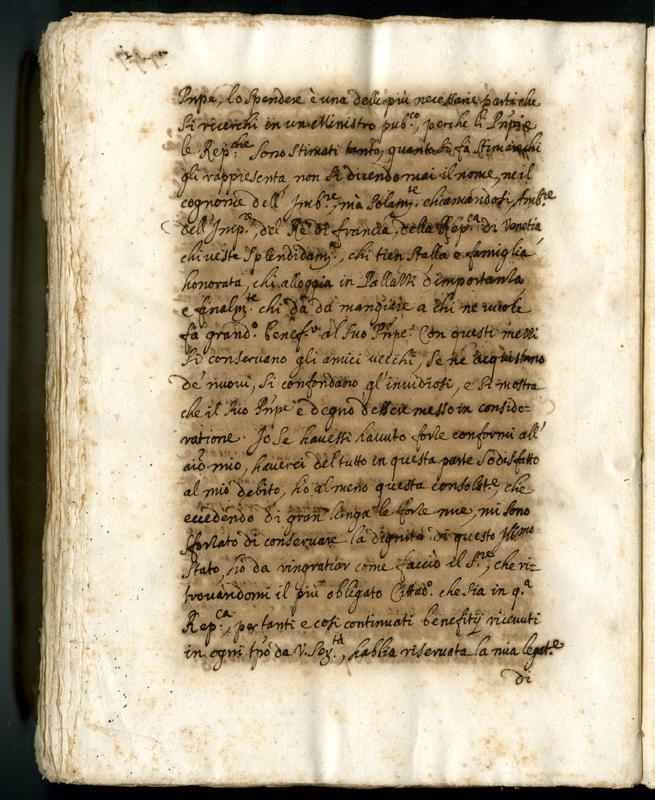 Prñpe, lo Spendere è una delle più necessarie parti che
Si ricerchi in un Ministro pub.co, perche li Prñpi, e
le Rep.che Sono stimati tanto, quanto si fà stimare chi
gli rappresenta non si dicendo mai il nome, ne il
cognome dell' Amb.re, mà Solam.te chiamandosi, Amb.re
dell' Imp.re, del Rè di francia, della Rep.ca di Venetia
chi veste Splendidam.te, chi tien Stalla e famiglia
honorata, chi alloggia in Pallazzi d'importanza
e finalm.te chi dà da mangiare a chi ne vuole
fà grand.o benef.o al suo Prñpe. Con questi mezzi
Si conservano gli amici vecchi, Se ne acquistano
de' nuovi, si confondano gl'invidiosi, e si mostra
che il suo Prñpe è degno d'esser messo in conside=
ratione. Io Se havessi havuto forze conformi all'
aĩo mio, haverei del tutto in questa parte Sodisfatto
al mio debito, hò al meno questa consolat.e, che
eccedendo di gran lunga le forze mie, mi sono
sforzato di conservare la dignità di questo Ill.mo
Stato, hò da ringratiar come faccio il S.re, che ri=
trovandomi il più obligato Cittad.o che sia in q.a
Rep.ca, per tanti e così continuati benefitij ricevuti
in ogni tp̃o da V. Ser.tà, habbia riservata la mia legat.e
di